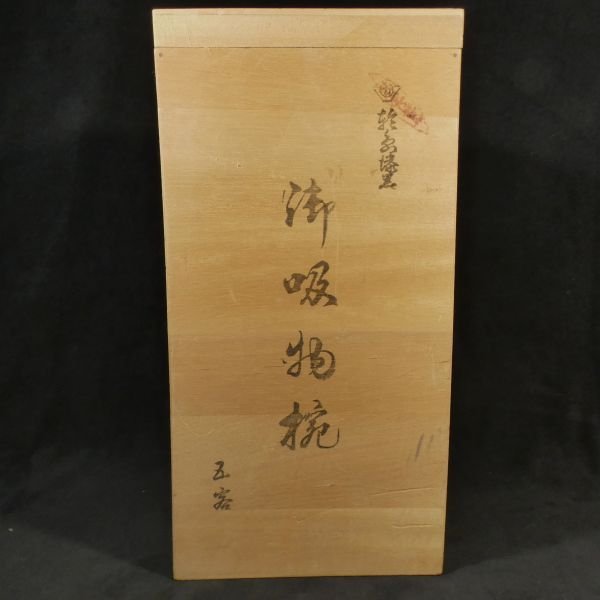 輪島塗
御吸物椀
五客